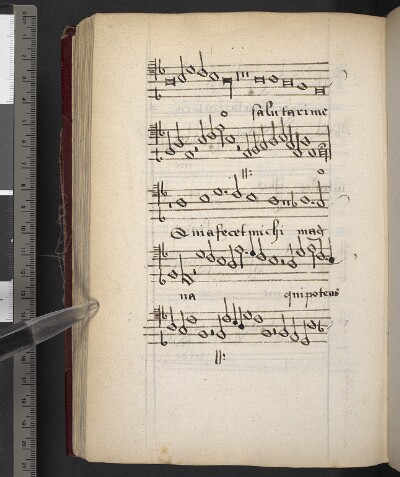 o salutari me
o
Quia fecet michi mag
na qui potens